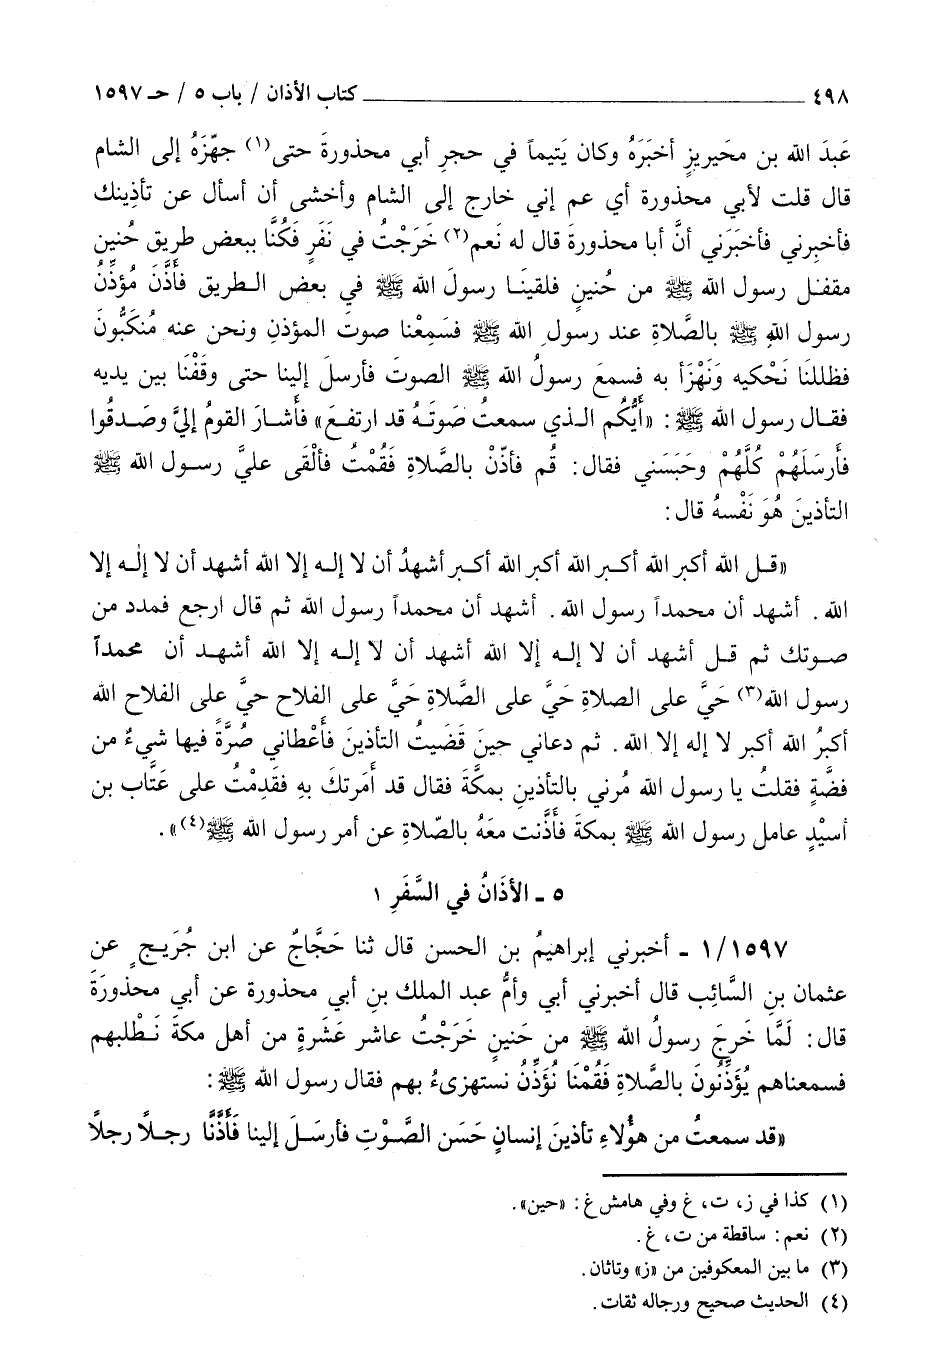 ٤٩٨ ــــــــــــــــــــ كتاب الأذان / باب ٥ / حـ ١٥٩٧
عَبدَ الله بن محَيريزٍ أخبَرَهُ وكان يَتيماً في حجرِ أبي محذورةَ حتى(١) جهّزَهُ إلى الشام
قال قلت لأبي محذورة أي عم إني خارج إلى الشام وأخشى أن أسأل عن تأذينك
فأخبِرني فأخبَرَني أنَّ أبا محذورةَ قال له نَعم(٢) خَرَجْتُ في نَفَرٍ فَكُنَّا ببعض طريق حُنينِ
مقفـل رسول الله ﷺ من حُنينٍ فلقينَـا رسولَ الله ﷺ في بعض الـطريق فَأَذَّنَ مُؤَذِّنُ
رسول اللهِ ﷺ بالصَّلاةِ عند رسول الله ﷺ فسَمِعْنا صوتَ المؤذنِ ونحن عنه مُنكَبُّونَ
فظللنَا نَحْكيه وَنَهْزَأ به فسمعَ رسولُ الله ﷺ الصوتَ فأرسلَ إلينا حتى وقَفْنا بين يديه
فقـال رسول الله ﷺ: «أَيُّكُم الـذي سمعتُ صَوتَـهُ قد ارتفـعَ» فأشـارَ القومُ إليَّ وصَـدقُوا
فأَرسَلَهُمْ كُلَّهُمْ وحَبَسَني فقال: قُم فأذّنْ بالصَّلاةِ فَقُمْتُ فألْقى عليَّ رسـول الله ﷺ
التأذينَ هُوَ نَفْسهُ قال:
«قـل الله أكبر الله أكـبر الله أكبر الله أكـبر أشهدُ أن لا إلـه إلا الله أشهد أن لا إلٰـه إلا
الله. أشهد أن محمداً رسول الله. أشهد أن محمداً رسول الله ثم قال ارجع فمدد من
صـوتك ثم قـل أشهد أن لا إلـه إلا الله أشهد أن لا إلـه إلا الله أشهـد أن محمداً
رسول الله(٣) حَيَّ على الصلاةِ حَيَّ على الصَّلاةِ حَيَّ على الفلاح حيَّ على الفلاح الله
أكبرُ الله أكبر لا إله إلا الله. ثم دعاني حينَ قَضَيتُ التأذينَ فأَعْطاني صُرَّةً فيها شيءٌ من
فضَّةٍ فقلتُ يا رسول الله مُرني بالتأذينِ بمكَّةَ فقال قد أمَرتكَ بهِ فقَدِمْتُ على عَتَّاب بن
أسيْدٍ عامل رسول الله ﷺ بمكةَ فأَذَّنت معَهُ بالصّلاةِ عن أمر رسول الله ﷺ(٤)».
٥ ـ الأذَانُ في السَّفَرِ ١
١/١٥٩٧ ـ أخبرني إبراهيمُ بن الحسن قال ثنا حَجَّاجٌ عن ابن جُرَيـجٍ عن
عثمان بنِ السَّائِب قال أخبرني أبي وأمُّ عبد الملك بنِ أبي محذورة عن أبي محذورَةَ
قال: لَمَّا خَرجَ رسولُ الله ﷺ من حَنينٍ خَرَجْتُ عاشر عَشَرةٍ من أهل مكةَ نَـطْلبهم
فسمعناهم يُؤَذِّنُونَ بالصَّلاةِ فَقُمْنَا نُؤَذِّنُ نستهزىءُ بهم فقال رسول الله ﷺ:
«قد سمعتُ من هؤُلاءِ تأذينَ إنسانٍ حَسَن الصَّوْتِ فأرسَـلَ إلينا فَأَذَّنَّا رجـلًا رجلًا
(١) كذا في ز، ت، غ وفي هامش غ: «حين».
(٢) نعم: ساقطة من ت، غ.
(٣) ما بين المعكوفين من «ز» وتاثان.
(٤) الحديث صحيح ورجاله ثقات.